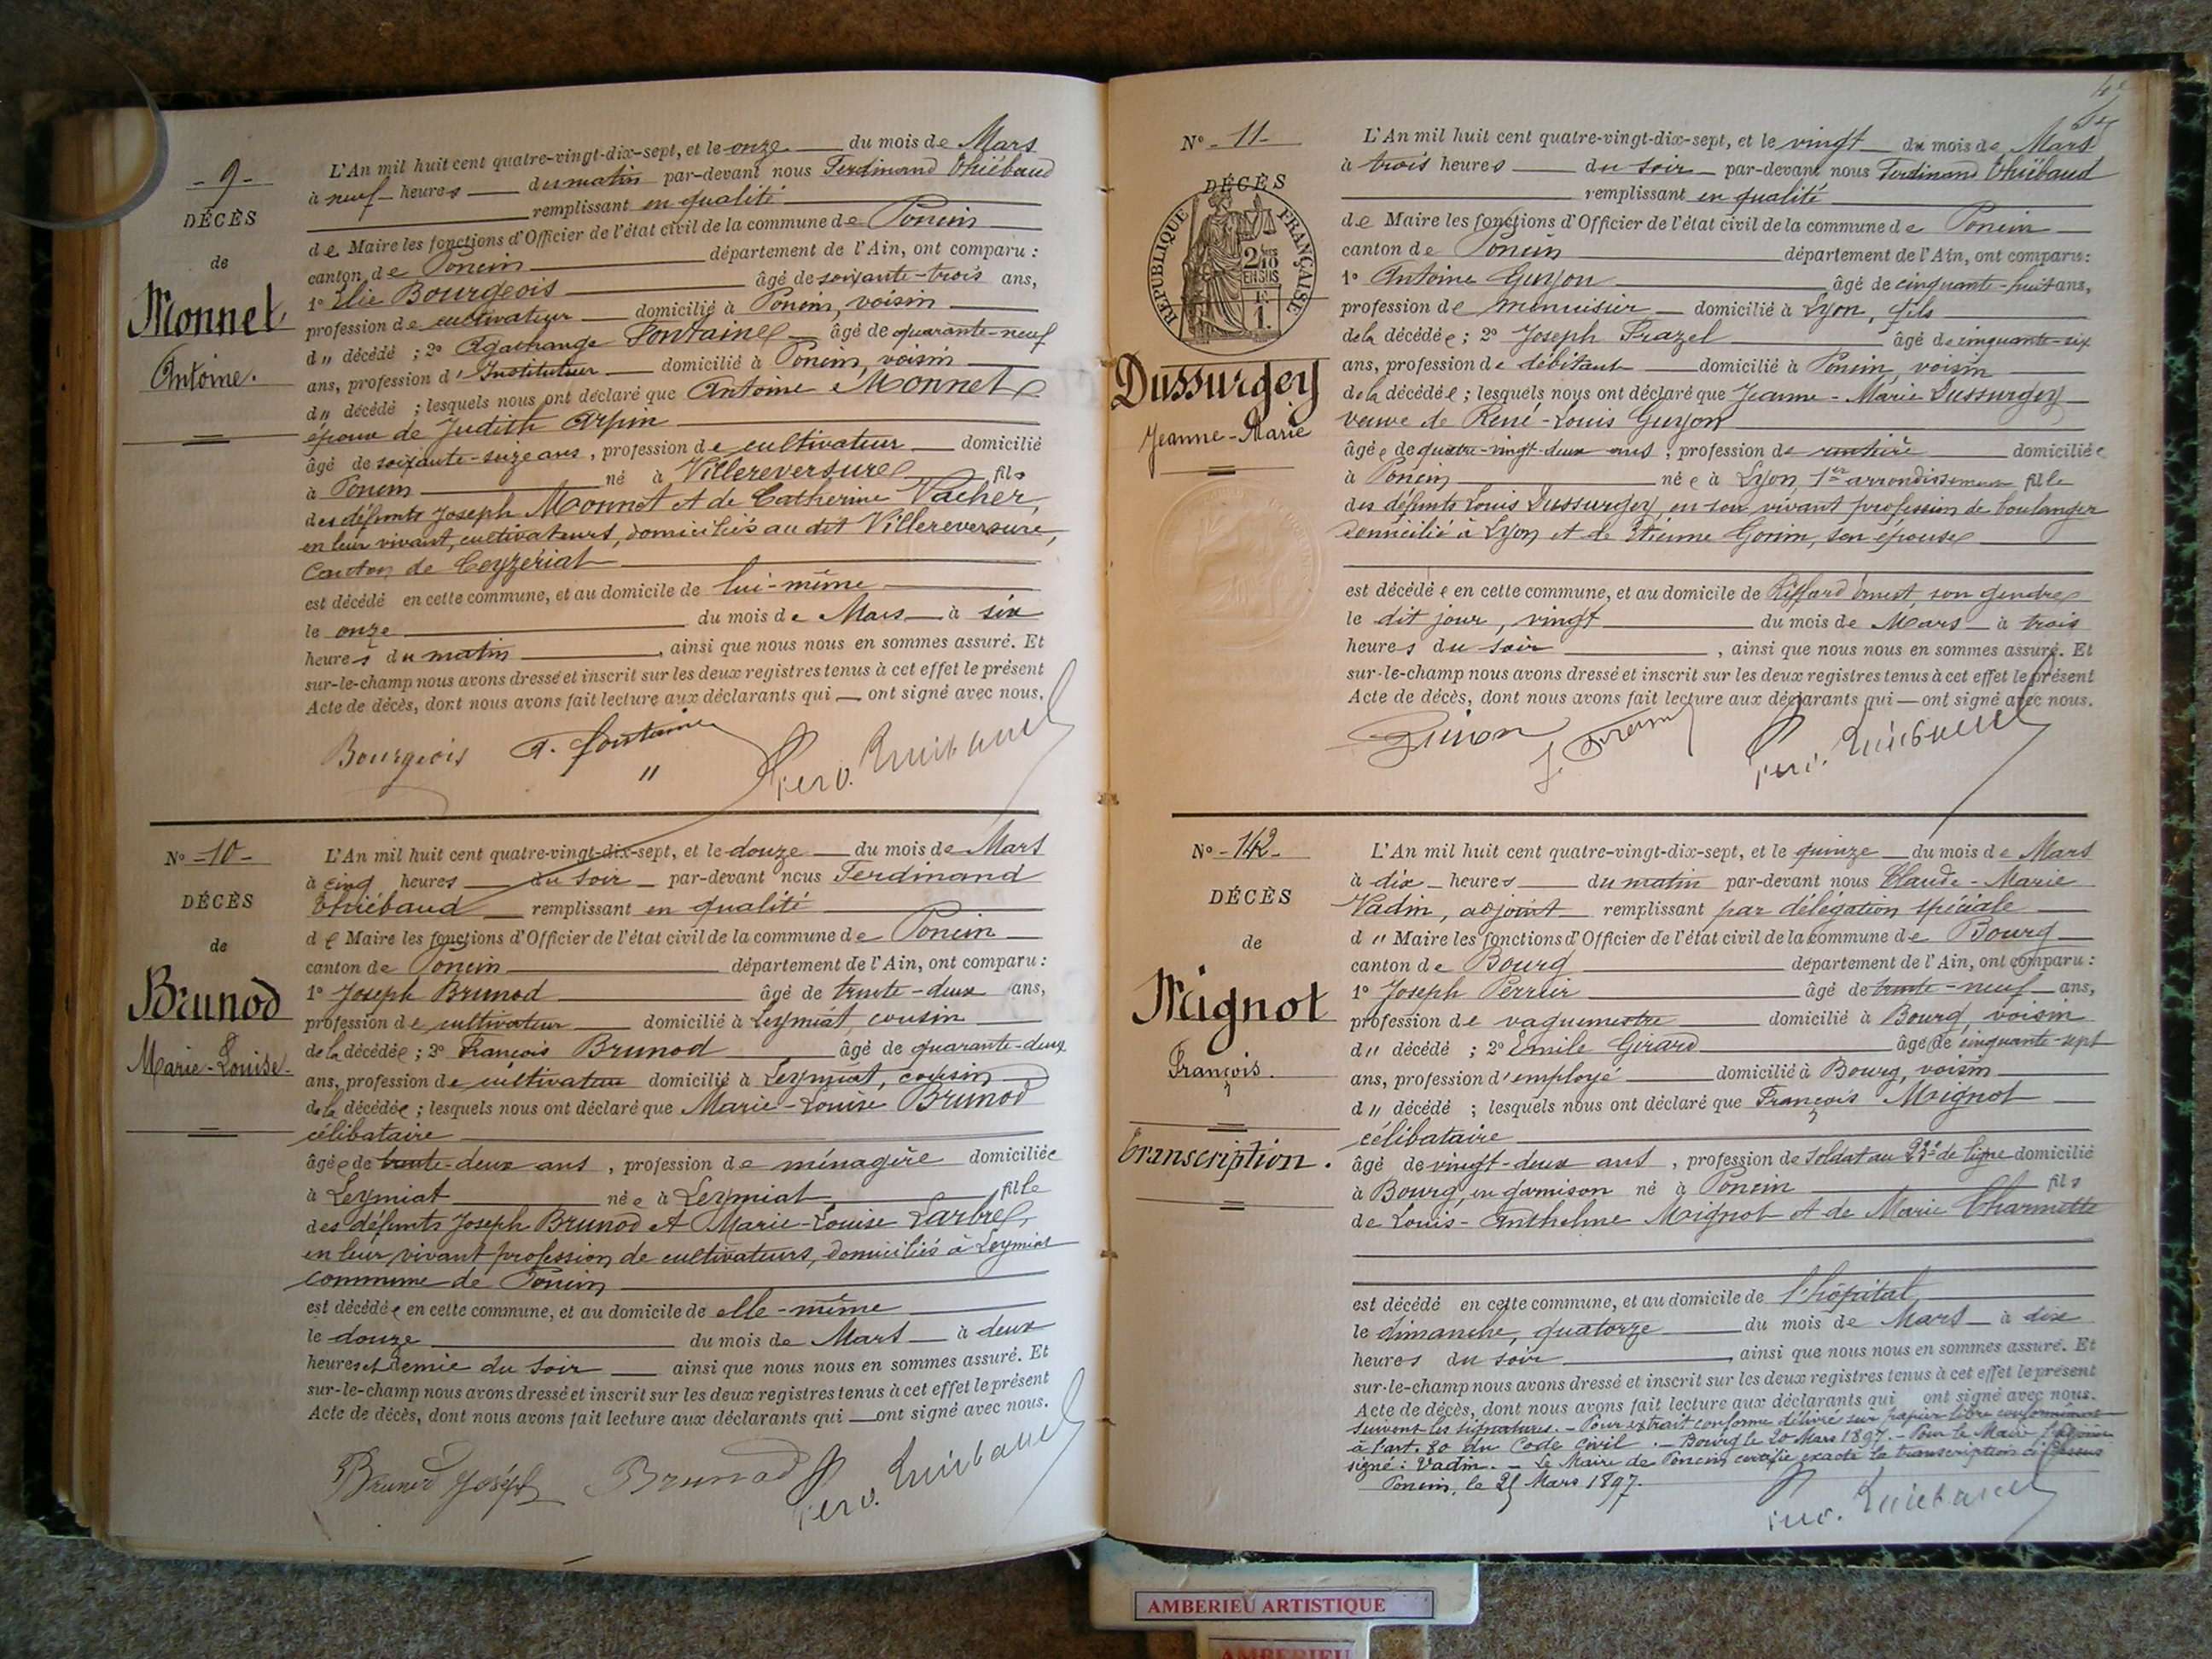 - 9 -
DÉCÈS
de
Monnet
Antoine.
L'An mil huit cent quatre-vingt-dix-sept, et le onze du mois de Mars
à neuf heures du matin par-devant nous Ferdinand Thiébaud
remplissant en qualité
de Maire les fonctions d'Officier de l'état civil de la commune de Poncin
canton de Poncin département de l'Ain, ont comparu :
1° Elie Bourgeois âgé de soixante-trois ans,
profession de cultivateur domicilié à Poncin, voisin
d" décédé ; 2° Agathange Fontaine âgé de quarante-neuf
ans, profession d'Instituteur domicilié à Poncin, voisin
d" décédé ; lesquels nous ont déclaré que Antoine Monnet
époux de Judith Arpin
âgé de soixante-seize ans, profession de cultivateur domicilié
à Poncin né à Villereversure fils
des défunts Joseph Monnet et de Catherine Vacher,
en leur vivant, cultivateurs, domiciliés au dit Villereversure,
Canton de Ceyzériat
est décédé en cette commune, et au domicile de lui-même
le onze du mois de Mars à six
heures du matin, ainsi que nous nous en sommes assuré. Et
sur-le-champ nous avons dressé et inscrit sur les deux registres tenus à cet effet le présent
Acte de décès, dont nous avons fait lecture aux déclarants qui — ont signé avec nous.
Bourgeois A. Fontaine Ferd. Thiébaud
N° -10-
DÉCÈS
de
Brunod
Marie-Louise.
L'An mil huit cent quatre-vingt-dix-sept, et le douze du mois de Mars
à cinq heures du soir par-devant nous Ferdinand
Thiébaud remplissant en qualité
de Maire les fonctions d'Officier de l'état civil de la commune de Poncin
canton de Poncin département de l'Ain, ont comparu :
1° Joseph Brunod âgé de trente-deux ans,
profession de cultivateur domicilié à Leymiat, cousin
de la décédée ; 2° François Brunod âgé de quarante-deux
ans, profession de cultivateur domicilié à Leymiat, cousin
de la décédée ; lesquels nous ont déclaré que Marie-Louise Brunod
célibataire
âgée de trente-deux ans, profession de ménagère domiciliée
à Leymiat née à Leymiat fille
des défunts Joseph Brunod et Marie-Louise Larbre,
en leur vivant profession de cultivateurs, domiciliés à Leymiat
commune de Poncin
est décédée en cette commune, et au domicile de elle-même
le douze du mois de Mars à deux
heures et demie du soir ainsi que nous nous en sommes assuré. Et
sur-le-champ nous avons dressé et inscrit sur les deux registres tenus à cet effet le présent
Acte de décès, dont nous avons fait lecture aux déclarants qui — ont signé avec nous.
Brunod Joseph Brunod Ferd. Thiébaud
N° -11-
DÉCÈS
RÉPUBLIQUE FRANÇAISE
Dussurgey
Jeanne-Marie
L'An mil huit cent quatre-vingt-dix-sept, et le vingt du mois de Mars
à trois heures du soir par-devant nous Ferdinand Thiébaud
remplissant en qualité
de Maire les fonctions d'Officier de l'état civil de la commune de Poncin
canton de Poncin département de l'Ain, ont comparu :
1° Antoine Guyon âgé de cinquante-huit ans,
profession de menuisier domicilié à Lyon, fils
de la décédée ; 2° Joseph Frazel âgé de cinquante-six
ans, profession de débitant domicilié à Poncin, voisin
de la décédée ; lesquels nous ont déclaré que Jeanne-Marie Dussurgey
veuve de René-Louis Guyon
âgée de quatre-vingt-deux ans, profession de rentière domiciliée
à Poncin née à Lyon, 1er arrondissement fille
des défunts Louis Dussurgey, en son vivant profession de boulanger
domicilié à Lyon et de Etienne Gonin, son épouse
est décédée en cette commune, et au domicile de Riffard Ernest son gendre
le dit jour, vingt du mois de Mars à trois
heures du soir, ainsi que nous nous en sommes assuré. Et
sur-le-champ nous avons dressé et inscrit sur les deux registres tenus à cet effet le présent
Acte de décès, dont nous avons fait lecture aux déclarants qui — ont signé avec nous.
Guion Ferd. Thiébaud
N° -12-
DÉCÈS
de
Mignot
François.
Transcription.
L'An mil huit cent quatre-vingt-dix-sept, et le quinze du mois de Mars
à dix heures du matin par-devant nous Claude-Marie
Vadin, adjoint remplissant par délégation spéciale
d" Maire les fonctions d'Officier de l'état civil de la commune de Bourg
canton de Bourg département de l'Ain, ont comparu :
1° Joseph Perrier âgé de trente-neuf ans,
profession de vaguemestre domicilié à Bourg, voisin
d" décédé ; 2° Emile Girard âgé de cinquante-sept
ans, profession d'employé domicilié à Bourg, voisin
d" décédé ; lesquels nous ont déclaré que François Mignot
célibataire
âgé de vingt-deux ans, profession de soldat au 23e de ligne domicilié
à Bourg, en garnison né à Poncin fils
de Louis-Anthelme Mignot et de Marie Charmette
est décédé en cette commune, et au domicile de l'hôpital
le dimanche, quatorze du mois de Mars à dix
heures du soir, ainsi que nous nous en sommes assuré. Et
sur-le-champ nous avons dressé et inscrit sur les deux registres tenus à cet effet le présent
Acte de décès, dont nous avons fait lecture aux déclarants qui ont signé avec nous.
suivent les signatures. - Pour extrait conforme délivré sur papier libre conformément
à l'art. 80 du Code Civil. - Bourg le 20 Mars 1897. - Pour le Maire l'adjoint
signé : Vadin. - Le Maire de Poncin certifie exacte la transcription ci-dessus
Poncin, le 25 Mars 1897.
Ferd. Thiébaud
AMBERIEU ARTISTIQUE
AMBERIEU